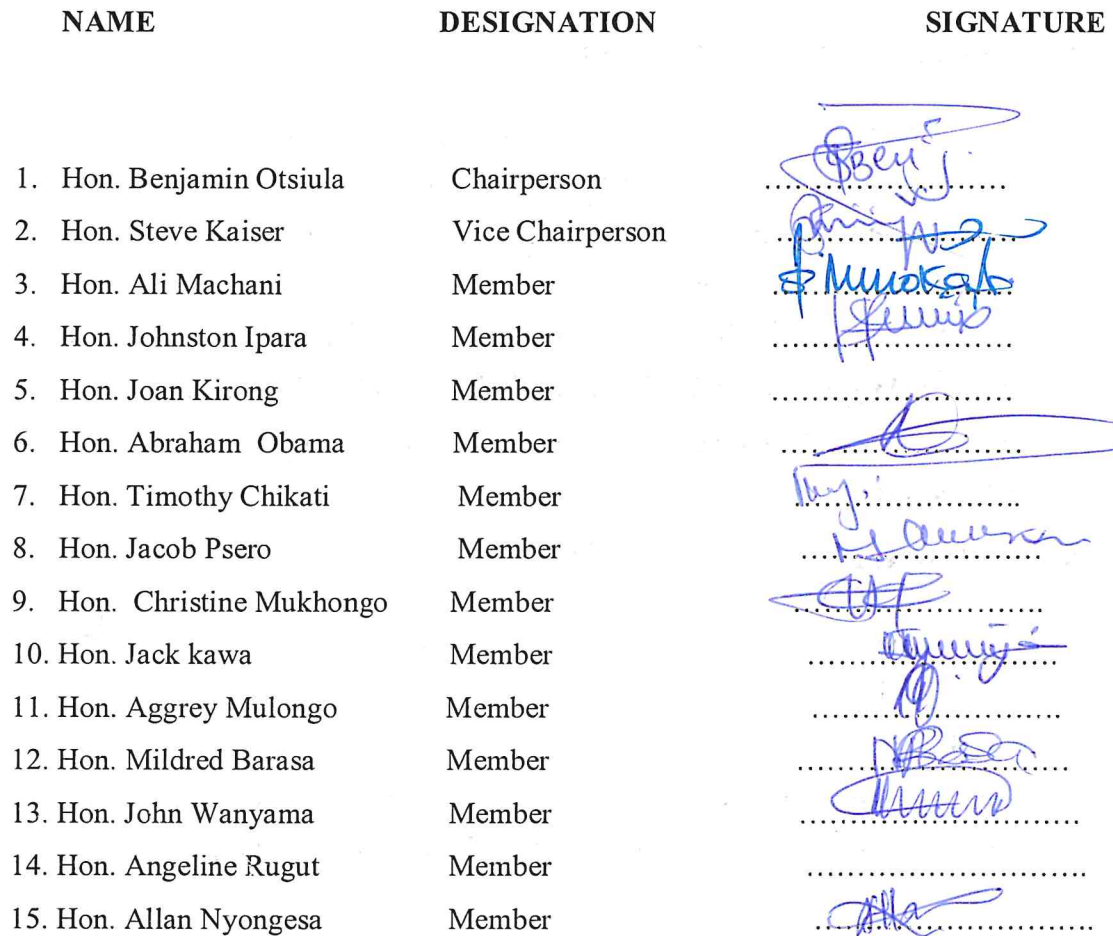 NAME DESIGNATION SIGNATURE
1. Hon. Benjamin Otsiula Chairperson ........................
2. Hon. Steve Kaiser Vice Chairperson ........................
3. Hon. Ali Machani Member ........................
4. Hon. Johnston Ipara Member ........................
5. Hon. Joan Kirong Member ........................
6. Hon. Abraham Obama Member ........................
7. Hon. Timothy Chikati Member ........................
8. Hon. Jacob Psero Member ........................
9. Hon. Christine Mukhongo Member ........................
10. Hon. Jack kawa Member ........................
11. Hon. Aggrey Mulongo Member ........................
12. Hon. Mildred Barasa Member ........................
13. Hon. John Wanyama Member ........................
14. Hon. Angeline Rugut Member ........................
15. Hon. Allan Nyongesa Member ........................